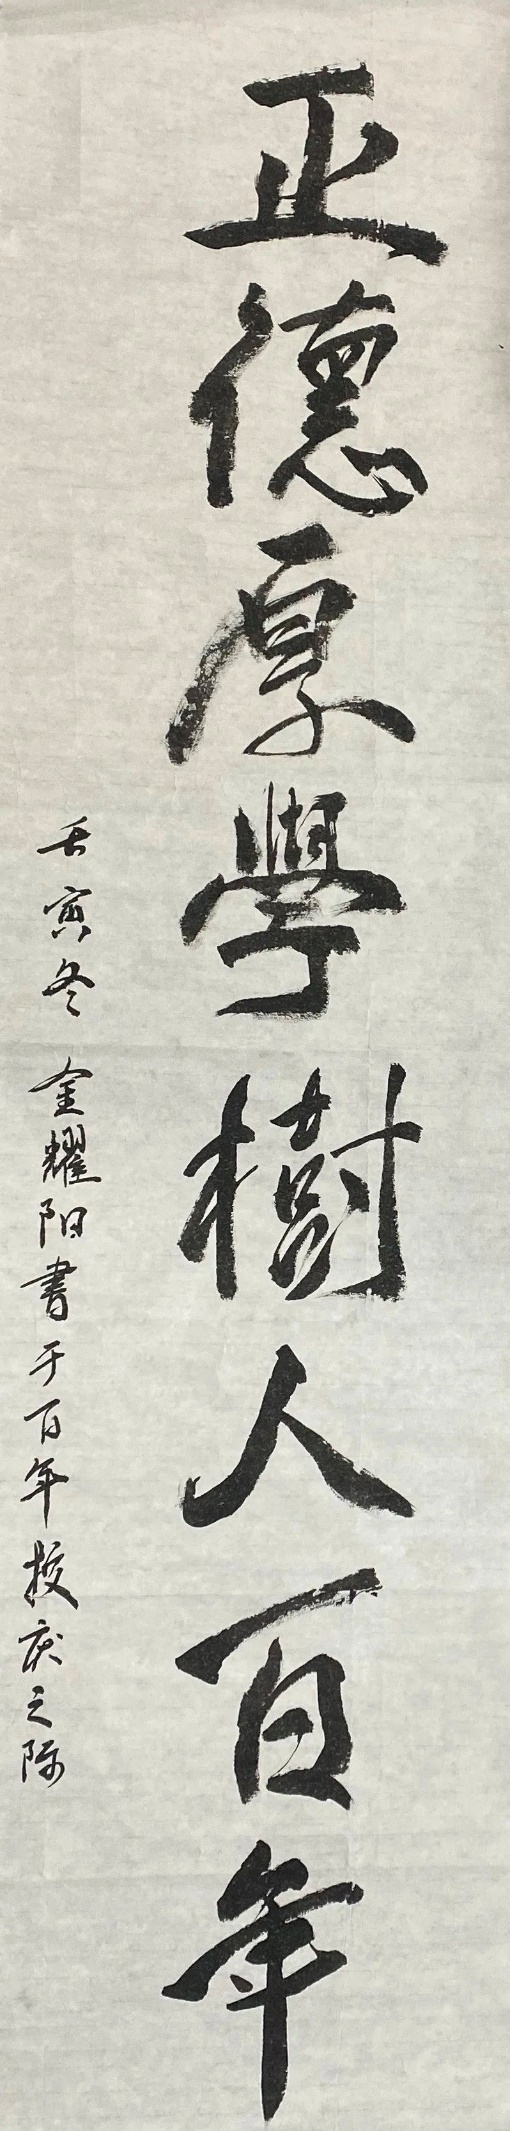 正德厚學樹人百年
壬寅冬 金耀阳書于百年校庆之际